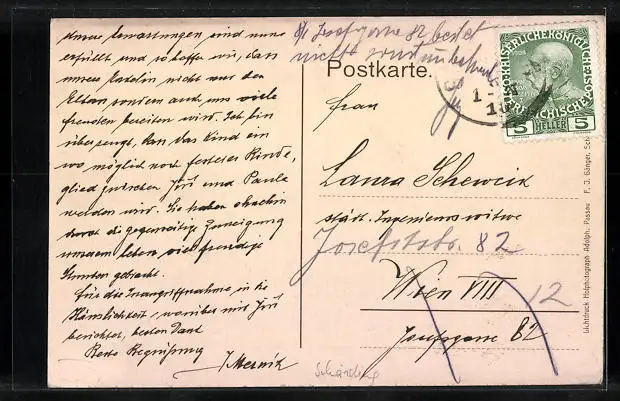 unsere Erwartungen sind nun
erfüllt und so hoffen wir, dass
unsere nicht nur den
Eltern sondern auch uns viele
Freuden bereiten wird. Ich bin
überzeugt, dass das Kind ein
wo möglich noch festeres Binde,
glied zwischen und Paula
werden wird. Sie haben ohnehin
durch die gegenwärtige Zuneigung
unserem leben viel freudige
Stunden gebracht.
Für die Inangriffnahme in die
Häuslichkeit, worüber mir
berichtet, besten Dank
Beste Begrüßung
Josefgasse 82 besteht
nicht
Postkarte.
KAISERLICHE KÖNIGLICHE
ÖSTERREICHISCHE
5 HELLER 5
Frau
Laura Schewcik
städt. Ingenieurswitwe
Josefstrstr. 82
Wien VIII
12
Josefsgasse 82
Schärding
Lichtdruck Hofphotograph Adolph, Passau F. J. Gänger,